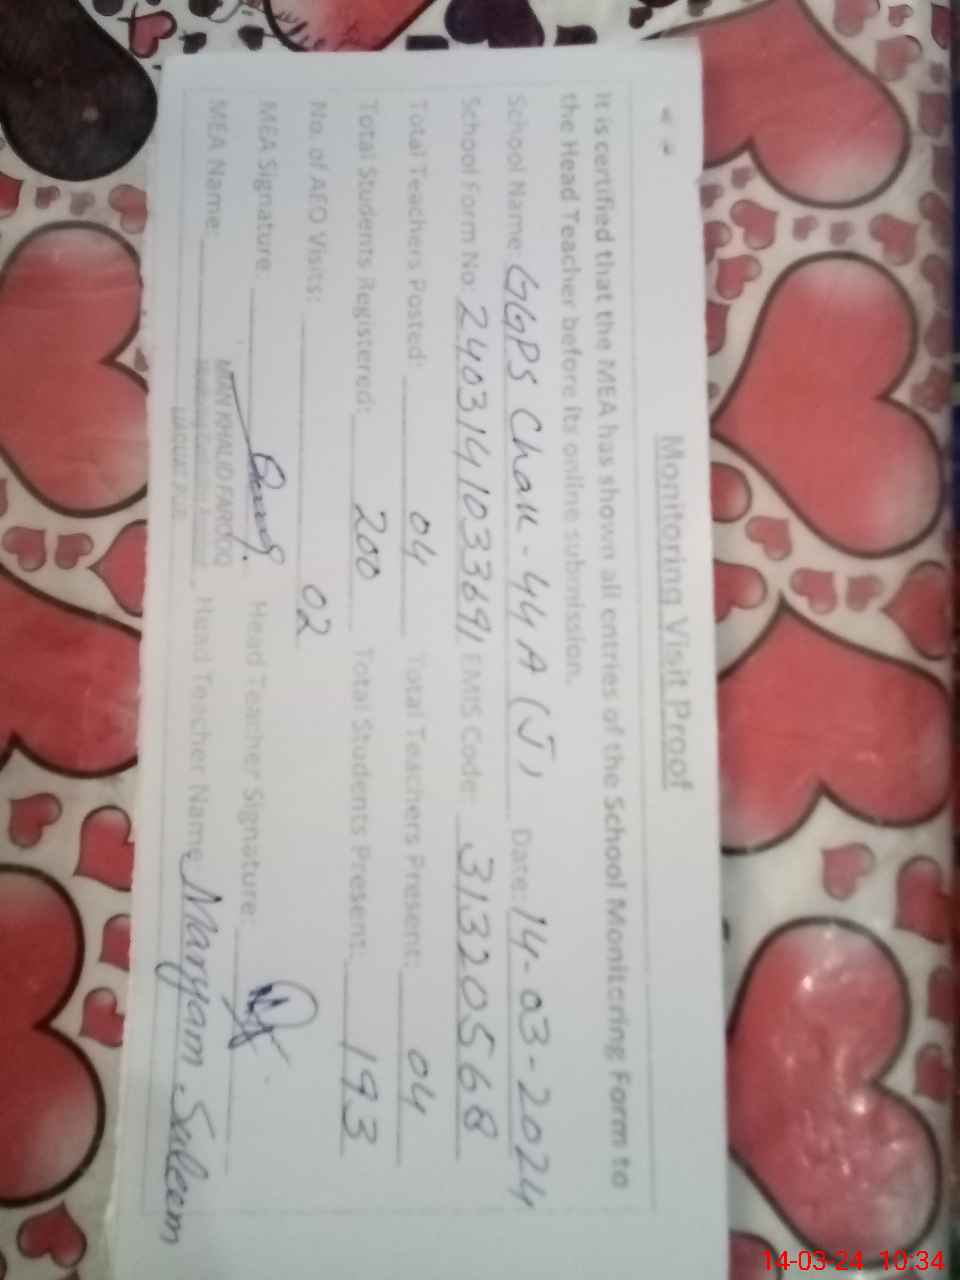 Monitoring Visit Proof
It is certified that the MEA has shown all entries of the School Monitering Form to
the Head Teacher before its online submission.
School Name: GGPS Chak - 44 A (J) Date: 14-03-2024
School Form No: 2403141033691 EMIS Code: 31320568
Total Teachers Posted: 04 Total Teachers Present: 04
Total Students Registered: 200 Total Students Present: 193
No. of AEO Visits: 02
MEA Signature: Head Teacher Signature:
MIAN KHALID FAROOQ
MEA Name: Head Teacher Name: Maryam Saleem
14-03-24 10:34